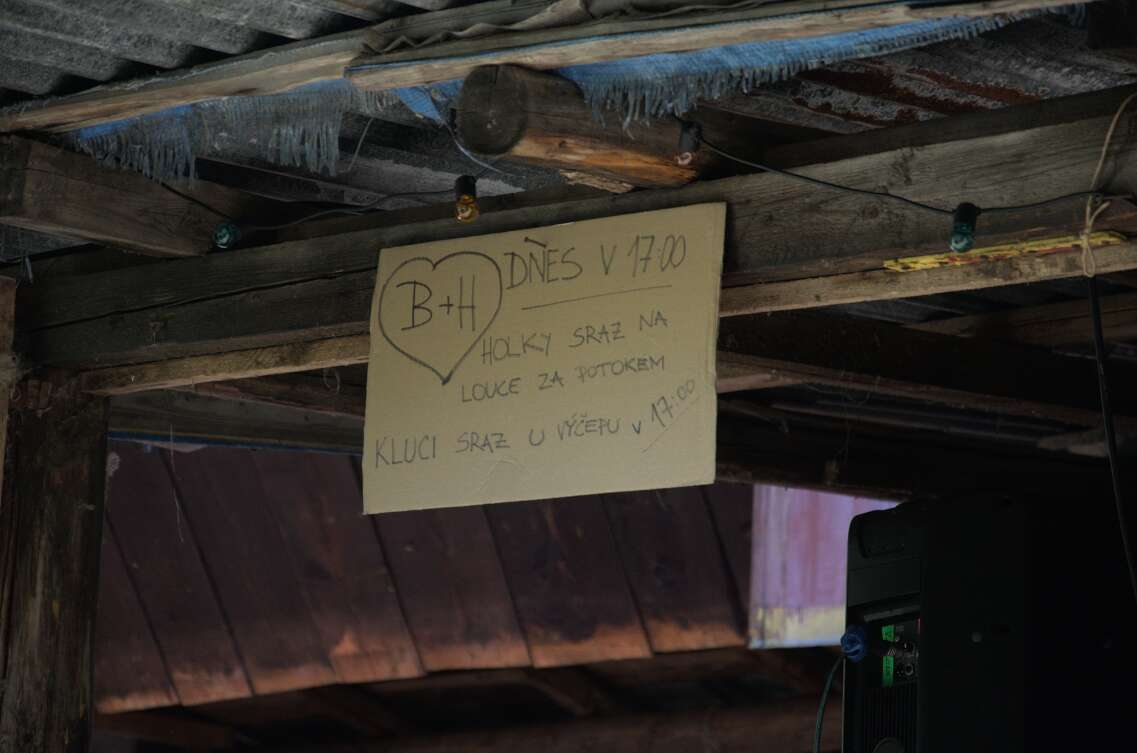 B+H
DŇES V 17:00
HOLKY SRAZ NA
LOUCE ZA POTOKEM
KLUCI SRAZ U VÝČEPU V 17:00